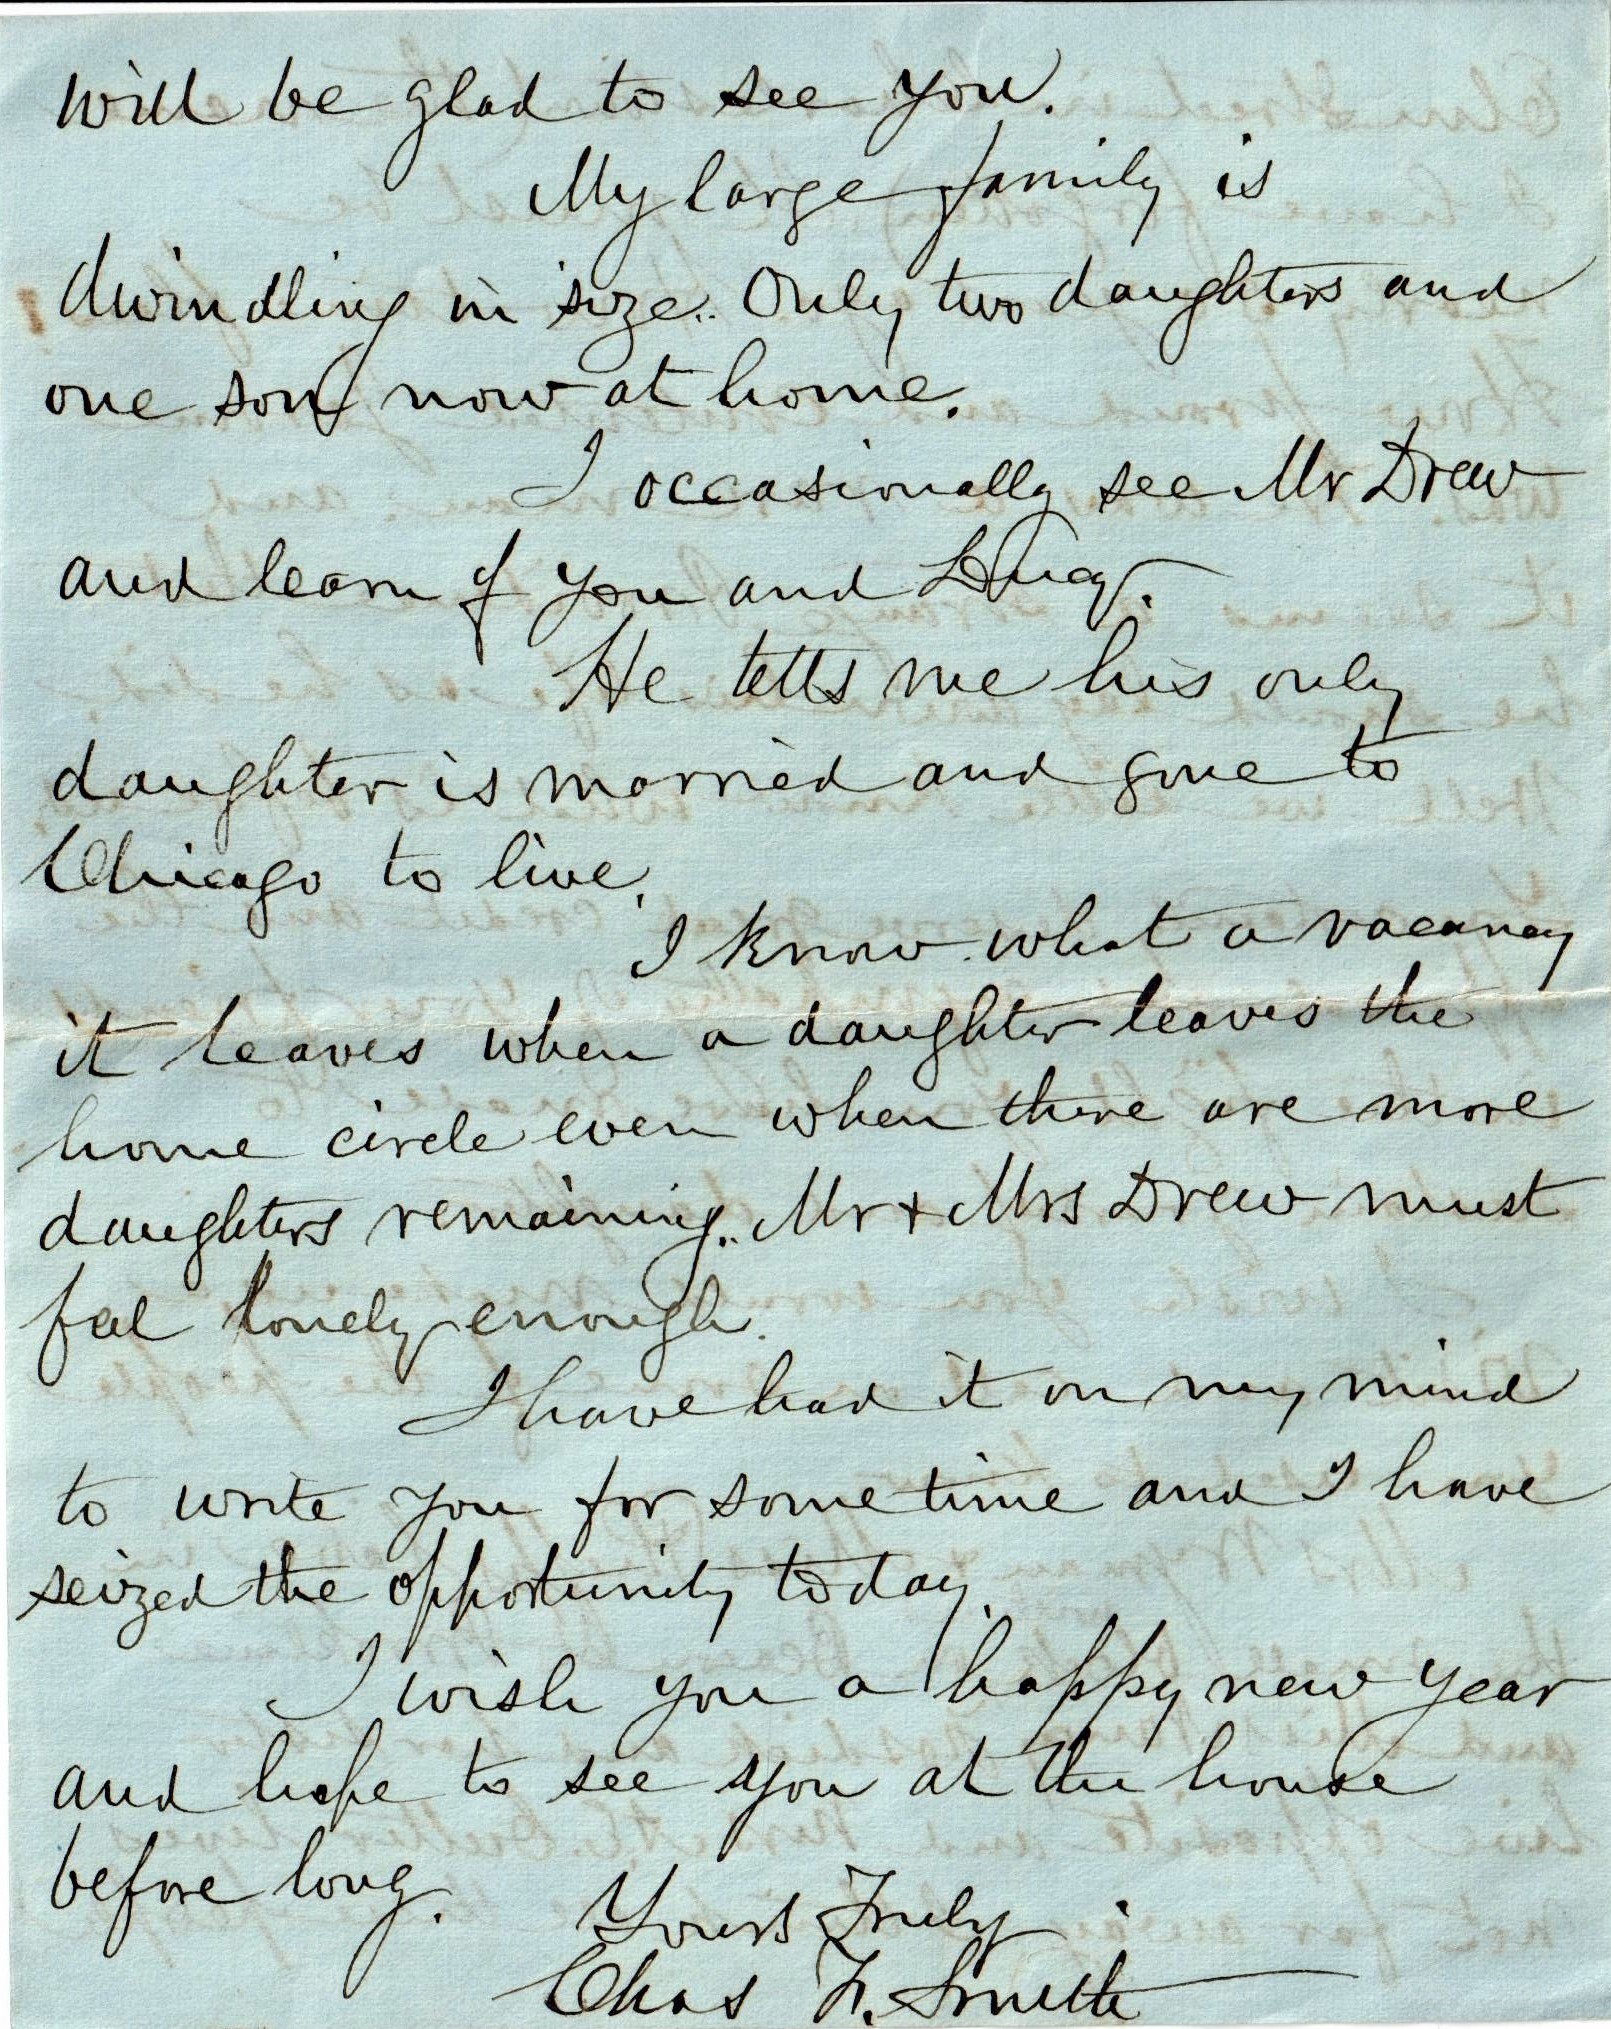 will be glad to see you.
My large family is
dwindling in size. Only two daughters and
one son now at home.
I occasionally see Mr Drew
and learn of you and Lucy.
He tells me his only
daughter is married and gone to
Chicago to live.
I know what a vacancy
it leaves when a daughter leaves the
home circle even when there are more
daughters remaining. Mr + Mrs Drew must
feel lonely enough.
I have had it on my mind
to write you for some time and I have
seized the opportunity today.
I wish you a happy new year
and hope to see you at the house
before long.
Yours Truly
Chas F. Smith